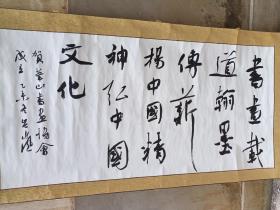 書畫載
道翰墨
傳薪
揚中國精
神弘中國
文化
賀山書畫協會
成立乙未冬